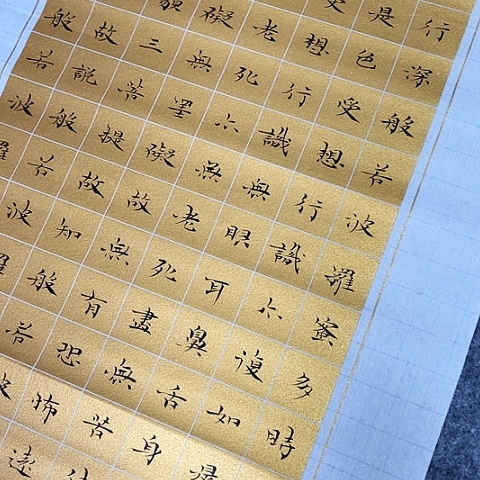 行深般若波羅蜜多時
是色受想行識亦復如是
想行識無眼耳鼻舌身
老死亦無老死盡無苦
礙無罣礙故無有恐怖遠
藐三菩提故知般若波
故説般若波羅
般若波羅